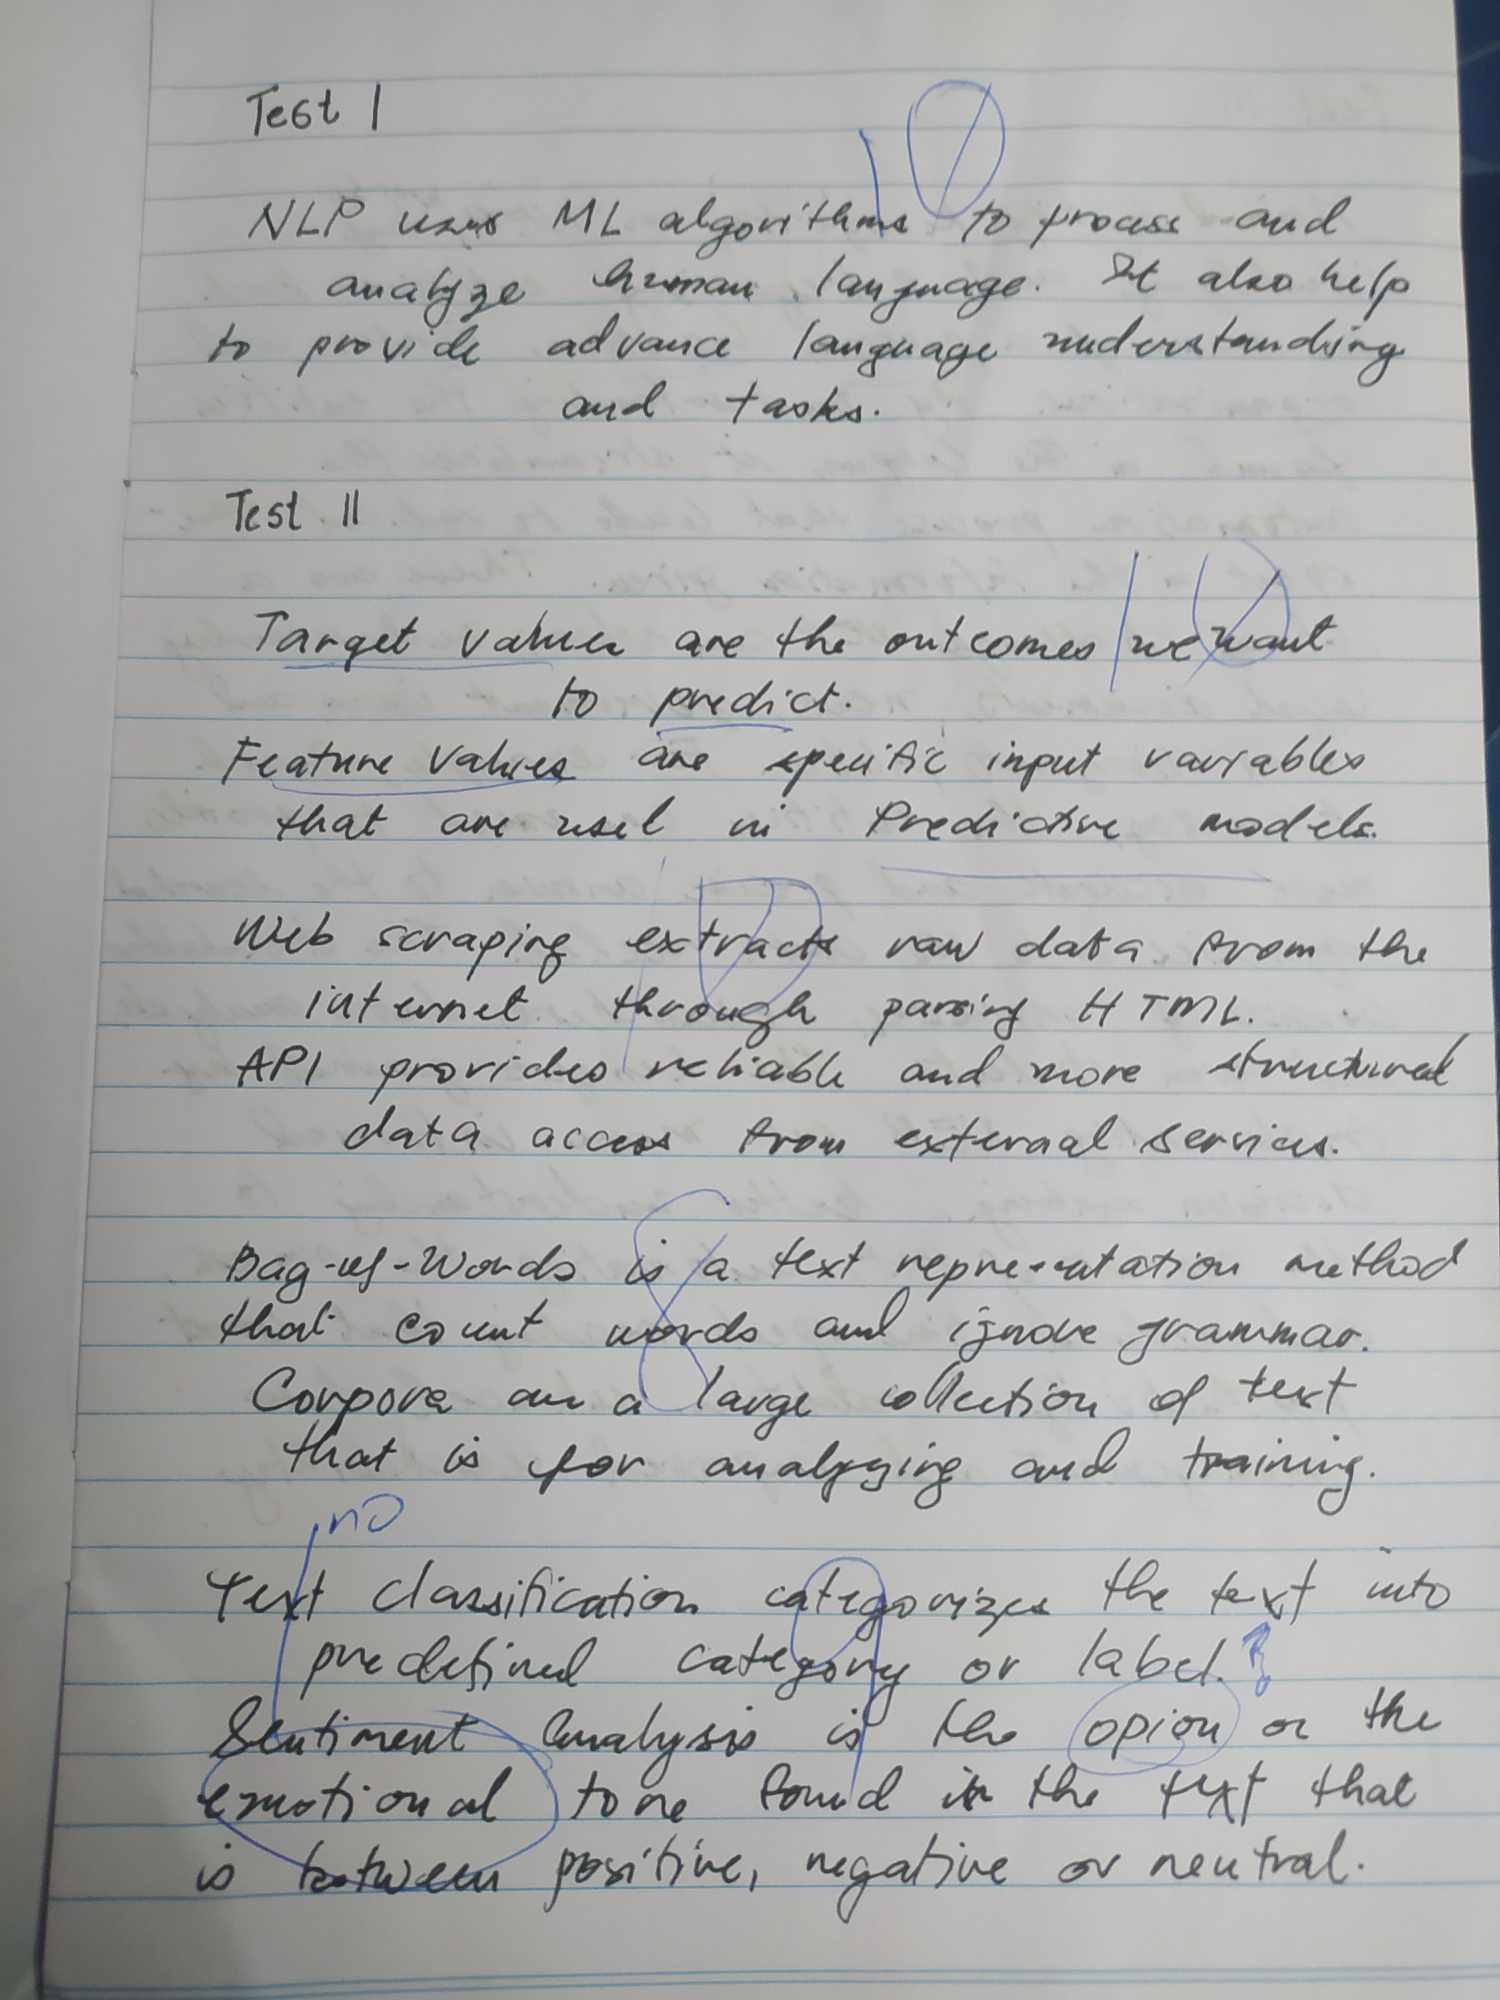 Test I
10
NLP uses ML algorithms to process and
analyze human language. It also help
to provide advance language understanding
and tasks.
Test II
10
Target values are the outcomes we want
to predict.
Feature values are specific input variables
that are used in Predictive models.
10
Web scraping extracts raw data from the
internet through parsing HTML.
API provides reliable and more structured
data access from external services.
8
Bag-of-Words is a text representation method
that count words and ignore grammar.
Corpora are a large collection of text
that is for analyzing and training.
no
9
Text classification categorizes the text into
predefined category or label.
Sentiment Analysis is the opion or the
emotional tone found in the text that
is between positive, negative or neutral.